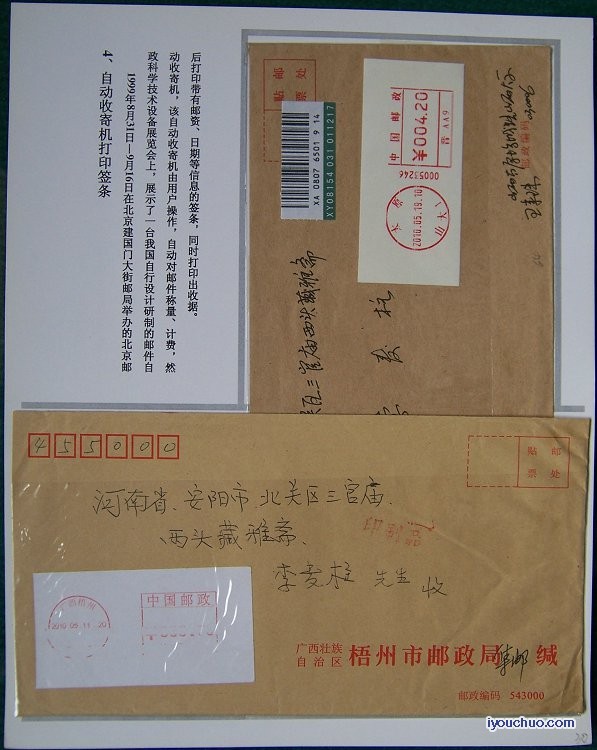 4、自动收寄机打印签条
1999年8月31日—9月16日在北京建国门大街邮局举办的北京邮
政科学技术设备展览会上，展示了一台我国自行设计研制的邮件自
动收寄机，该自动收寄机由用户操作，自动对邮件称量、计费，然
后打印带有邮资、日期等信息的签条，同时打印出收据。
贴 邮
票 处
XA 0807 6501 9 14
XY08154 031 011217
中国邮政
¥004.20
晋 AA9
00053246
2010.05.19.10
邮政编码
三官庙西头藏雅斋
455000
贴 邮
票 处
河南省、安阳市北关区三官庙、
西头藏雅斋、
李发柱 先生 收
印刷品
中国邮政
2010 05 11 20
广西壮族
自治区
梧州市邮政局集邮 缄
邮政编码 543000
iyouchuo.com